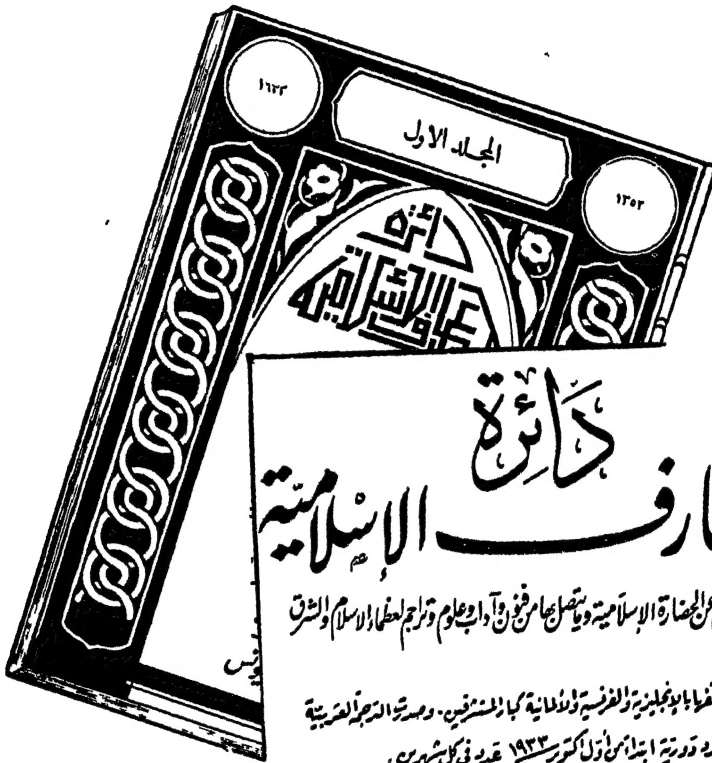 ١٦٣٣
المجلد الأول
١٣٥٢
دائرة
دَائِرَة
ارف الإسلامية
عن الحضارة الإسلامية وما يتصل بها من فنون وآداب وعلوم وتراجم لعظماء الإسلام والشرق
بالإنجليزية والفرنسية والألمانية كبار المستشرقين . وصدرت الترجمة العربية
دورية ابتداء من أول اكتوبر ١٩٣٣ عدد في كل شهرين